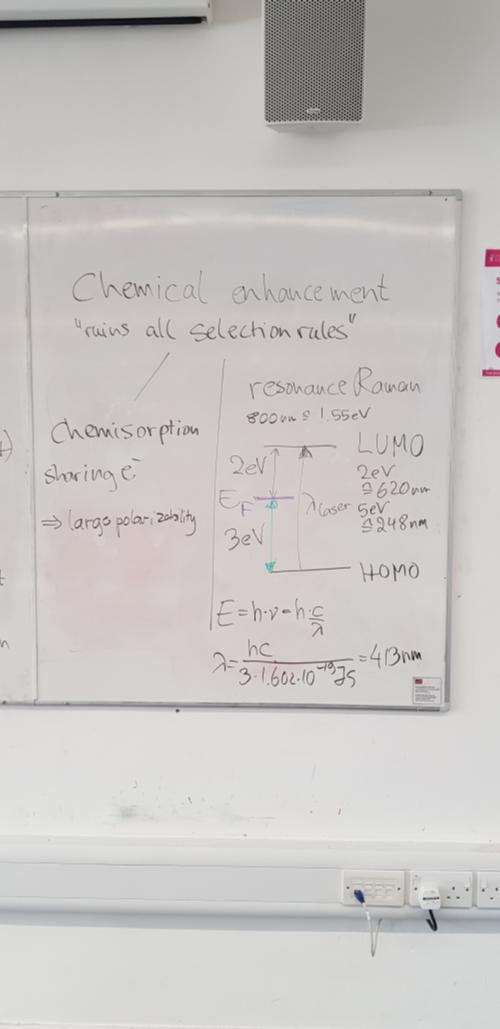 Chemical enhancement
"ruins all selection rules"
Chemisorption
sharing e⁻
⇒ large polarizability
resonance Raman
800nm ≙ 1.55eV
LUMO
2eV
2eV
≙ 620nm
E_F
λ Laser
5eV
≙ 248nm
3eV
HOMO
E = h·ν = h·c/λ
λ = hc / 3·1.602·10⁻¹⁹ Js = 413nm